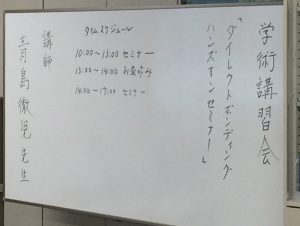 学術講習会
「ダイレクトボンディング
ハンズオンセミナー」
タイムスケジュール
10:00～13:00 セミナー
13:00～14:00 お昼休み
14:00～17:00 セミナー
講師
青島徹児先生